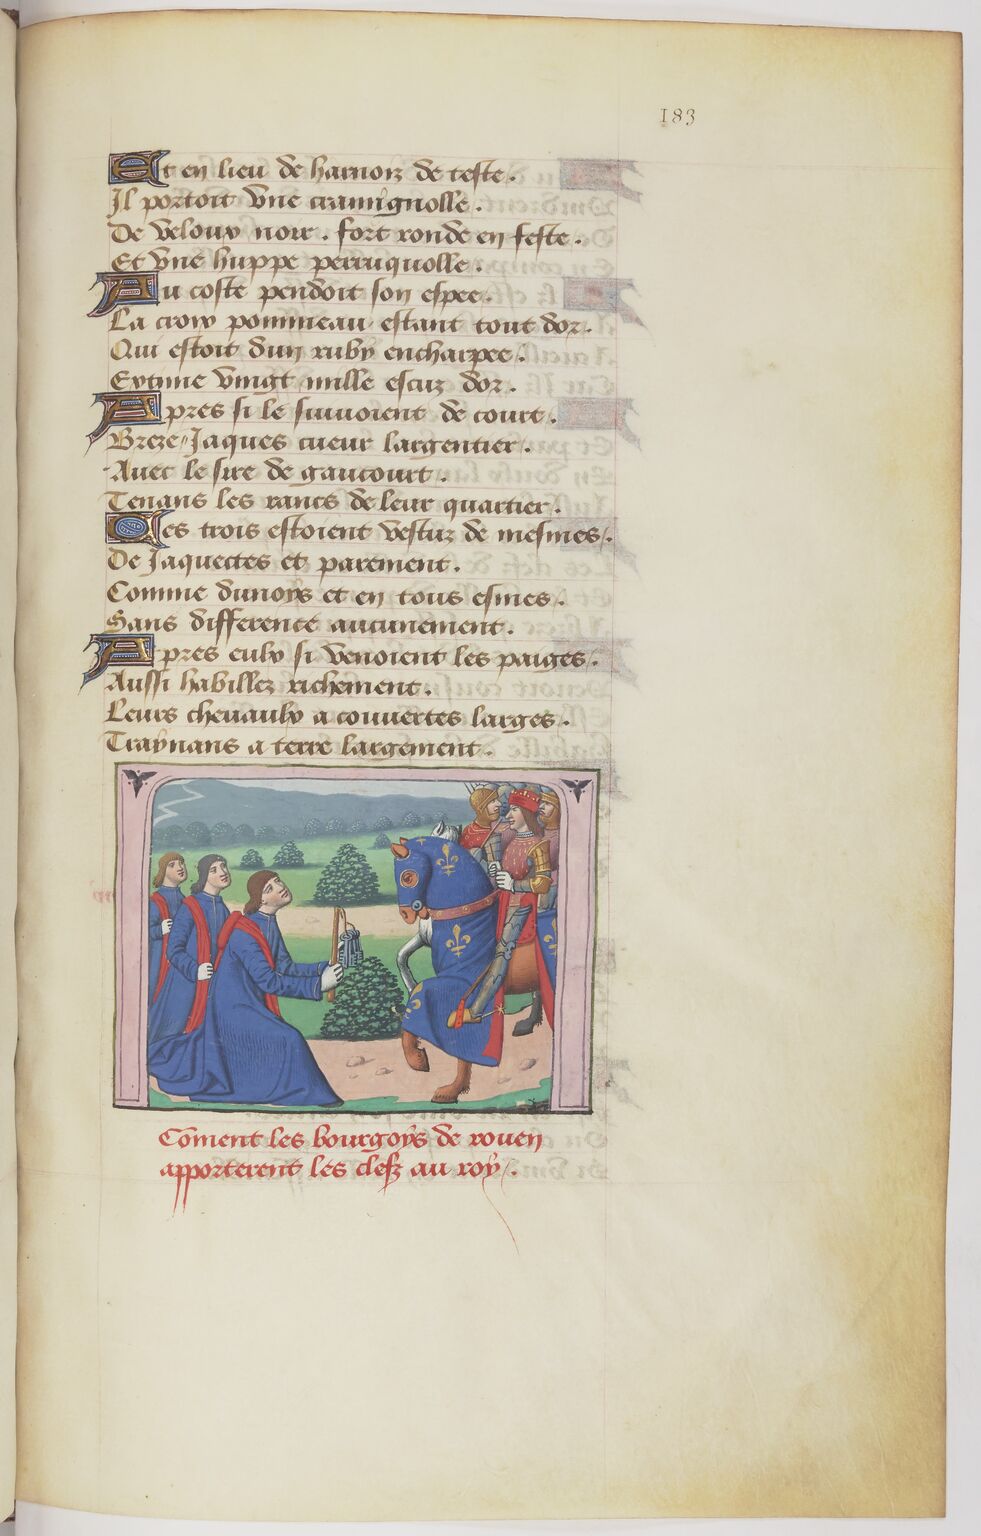 183
Et en lieu de harnoiz de teste.
Il portoit vne cramignolle.
De veloux noir. fort ronde en feste.
Et vne huppe perruquolle.
Au coste pendoit son espee.
La croix pommeau estant tout dor.
Qui estoit dun ruby encharpee.
Extime vingt mille escuz dor.
Apres si le suiuoient de court.
Breze Jaques cueur largentier.
Auec le sire de gaucourt.
Tenans les rancs de leur quartier.
Ces trois estoient vestuz de mesmes.
De Jaquectes et parement.
Comme dunoys et en tous esmes.
Sans difference aucunement.
Apres eulx si venoient les paiges.
Aussi habillez richement.
Leurs cheuaulx a couuertes larges.
Traynans a terre largement.
Coment les bourgoys de rouen
apporterent les clefz au roy.